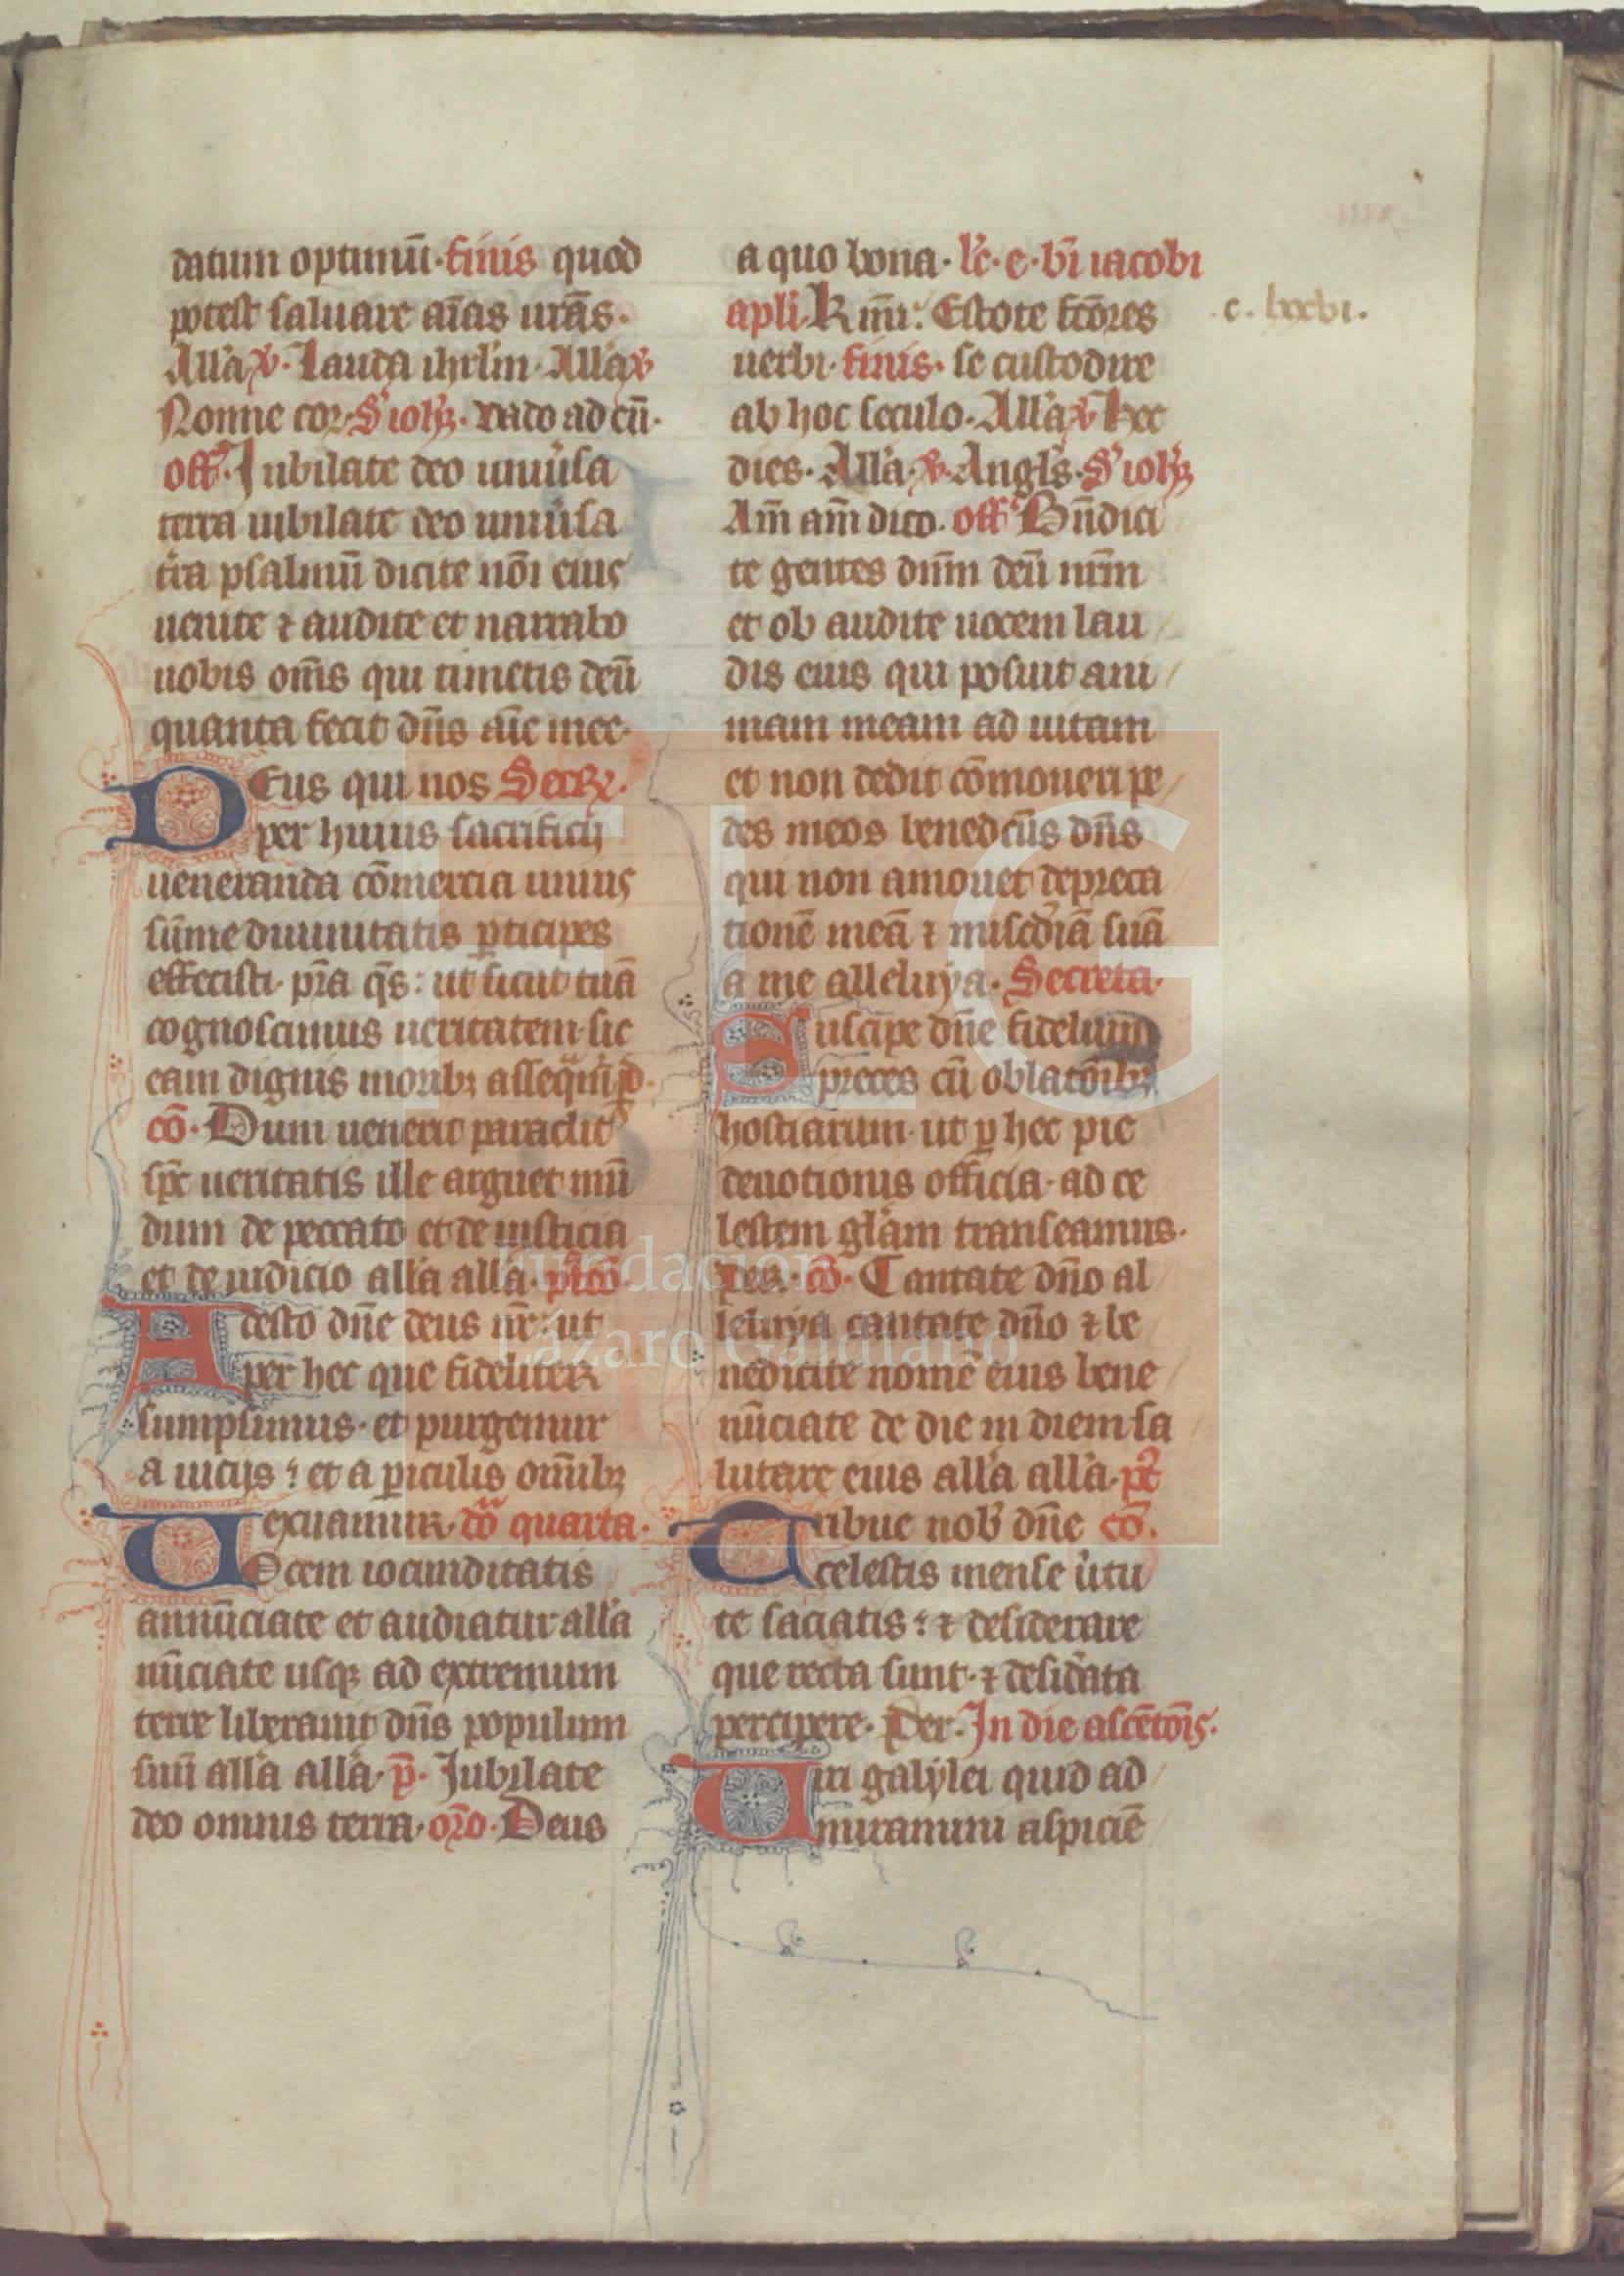 datum optimū· finis quod
potest saluare aīas urās·
Allā ℣· Lauda ihrlm· Allā ℣
Nonne cor· S' ioħ· vado ad eū·
off· Iubilate deo uniu'sa
terra iubilate deo uniu'sa
t'ra psalmū dicite nōi eius
uenite ⁊ audite et narrabo
uobis om̄s qui timetis deū
quanta fecit dn̄s aīe mee·
Deus qui nos Secr̄·
per huius sacrificij
ueneranda cōmercia unius
sūme diuinitatis ꝑticipes
effecisti· pr̄a qs̄: ut sicut tuā
cognoscimus ueritatem· sic
eam dignis moribꝫ assequam̄· p d·
cō· Dum uenerit paraclit'
sp̄c ueritatis ille arguet mū
dum de peccato et de iusticia
et de iudicio allā allā· p't cō·
Adesto dn̄e deus nr̄: ut
per hec que fideliter
sumpsimus· et purgemur
a uicijs: et a ꝑiculis om̄ibꝫ
exuamur· dō quarta·
Uocem iocunditatis
annūciate et audiatur allā
nūciate usqꝫ ad extremum
terre liberauit dn̄s populum
suū allā allā· p̄· Iubilate
deo omnis terra· or̄o· Deus
a quo bona· lc̄· e· bī iacobi
apli· K mī: Estote fc̄ores
uerbi· finis· se custodire
ab hoc seculo· Allā ℣ hec
dies· Allā· ℣· Angl's· S' ioħ
Am̄ am̄ dico· off Bn̄dici
te gentes dn̄m deū nr̄m
et ob audite uocem lau
dis eius qui posuit ani
mam meam ad uitam
et non dedit cōmoueri pe
des meos benedc̄us dn̄s
qui non amouet depreca
tionē meā ⁊ misc'diā suā
a me alleluya· Secreta·
Suscipe dn̄e fidelium
preces cū oblatōibꝫ
hostiarum· ut ꝑ hec pie
deuotionis officia· ad ce
lestem gl'am transeamus·
per· cō· Cantate dn̄o al
leluya cantate dn̄o ⁊ be
nedicite nomē eius bene
nūciate de die in diem sa
lutare eius allā allā· pt̄
Tribue nob' dn̄e cō·
celestis mense u'tu
te saciatis: ⁊ desiderare
que recta sunt· ⁊ desid'ata
percipere· Per· In die ascētōīs·
Uiri galylei quid ad
miramini aspiciē
c· lxxvi·
FLG
Fundación
Lázaro Galdiano